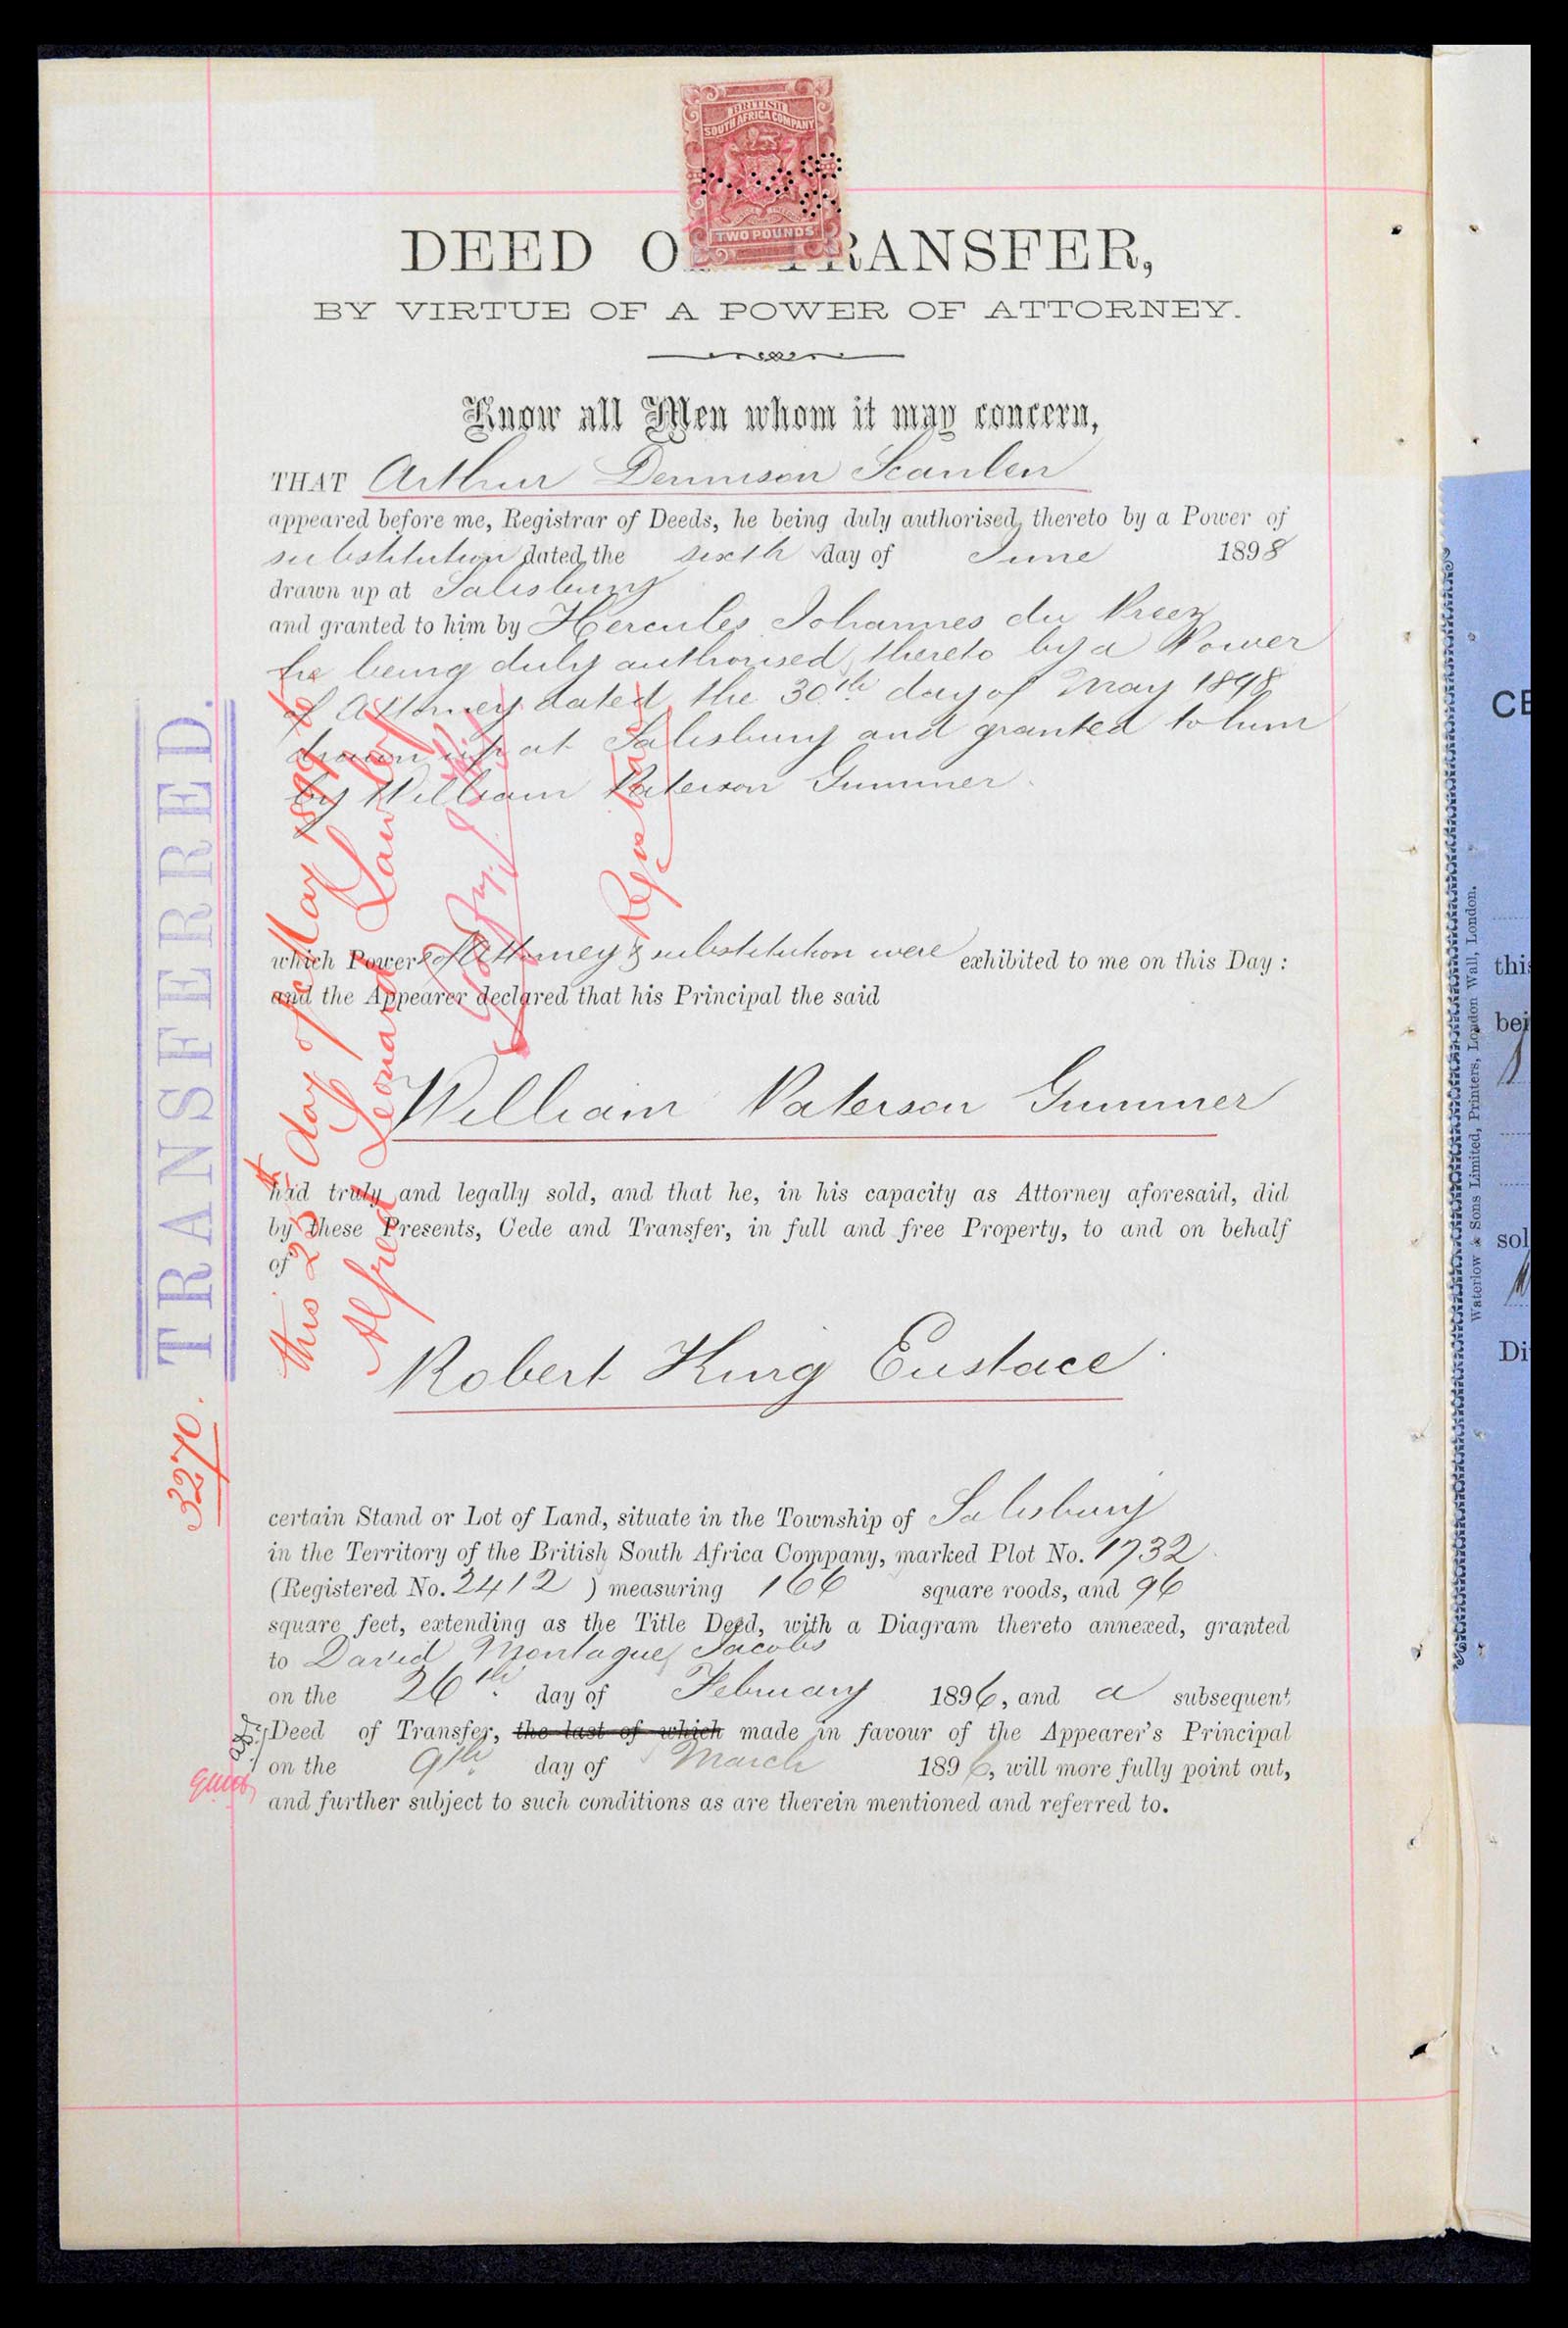 BRITISH
SOUTH AFRICA COMPANY
TWO POUNDS
DEED O TRANSFER,
BY VIRTUE OF A POWER OF ATTORNEY.
Know all Men whom it may concern,
THAT Arthur Dennison Scanlen
appeared before me, Registrar of Deeds, he being duly authorised, thereto by a Power of
substitution dated the sixth day of June 1898
drawn up at Salisbury
and granted to him by Hercules Johannes du Preez
he being duly authorised thereto by a Power
of Attorney dated the 30th day of May 1898
drawn up at Salisbury and granted to him
by William Paterson Gummer
which Powers of Attorney & substitution were exhibited to me on this Day :
and the Appearer declared that his Principal the said
William Paterson Gummer
had truly and legally sold, and that he, in his capacity as Attorney aforesaid, did
by these Presents, Cede and Transfer, in full and free Property, to and on behalf
of
Robert King Eustace
certain Stand or Lot of Land, situate in the Township of Salisbury
in the Territory of the British South Africa Company, marked Plot No. 1732
(Registered No. 2412 ) measuring 166 square roods, and 96
square feet, extending as the Title Deed, with a Diagram thereto annexed, granted
to David Montague Jacobs
on the 26th day of February 1896, and a subsequent
Deed of Transfer, the last of which made in favour of the Appearer's Principal
on the 9th day of March 1896, will more fully point out,
and further subject to such conditions as are therein mentioned and referred to.
TRANSFERRED.
3270.
this 25th day of May 1899 to
Alfred Leonard Lawley
Registrar
Waterlow & Sons Limited, Printers, London Wall, London.
CE
this
bei
sol
Di